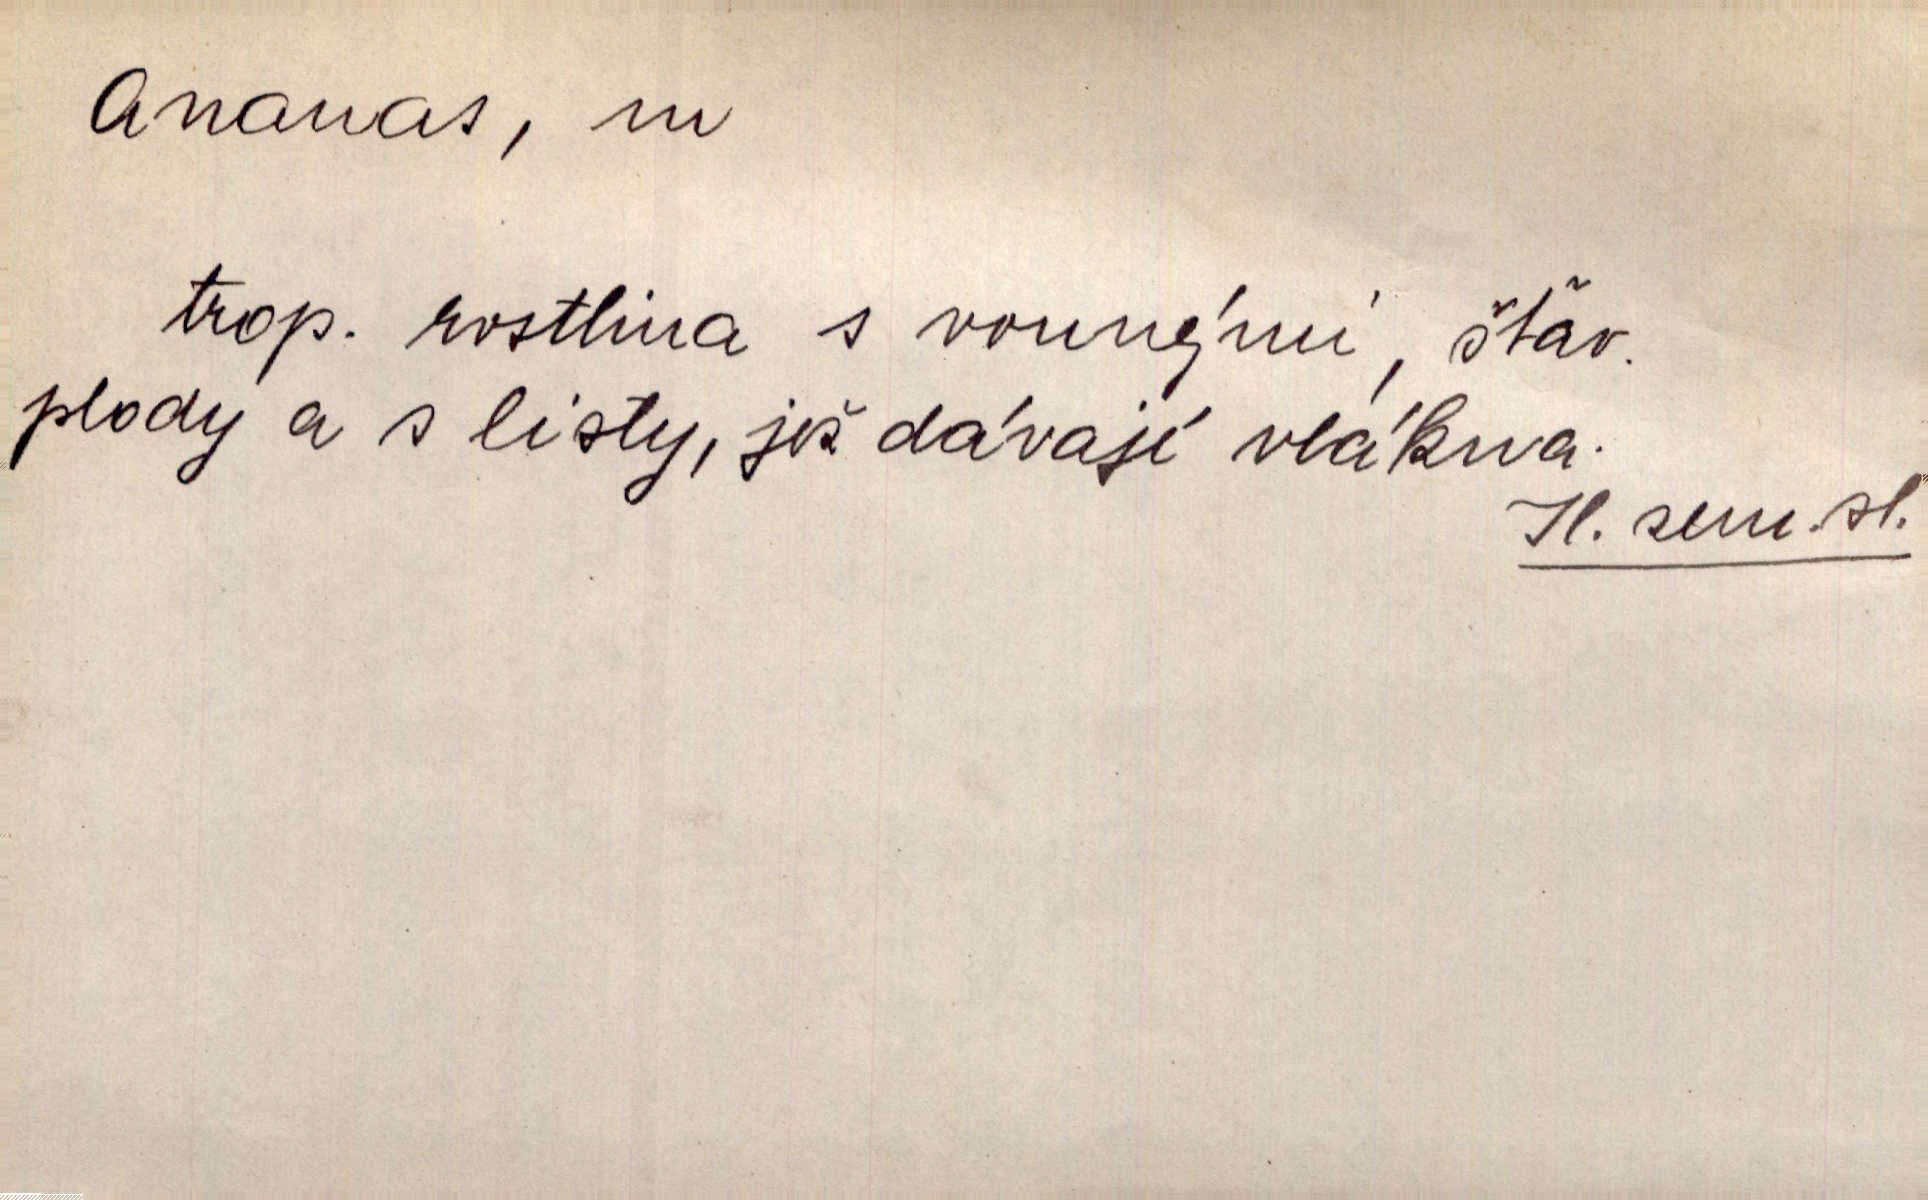 Ananas, m
trop. rostlina s vonnými, šťav.
plody a s listy, jež dávají vlákna.
Il. zem. sl.